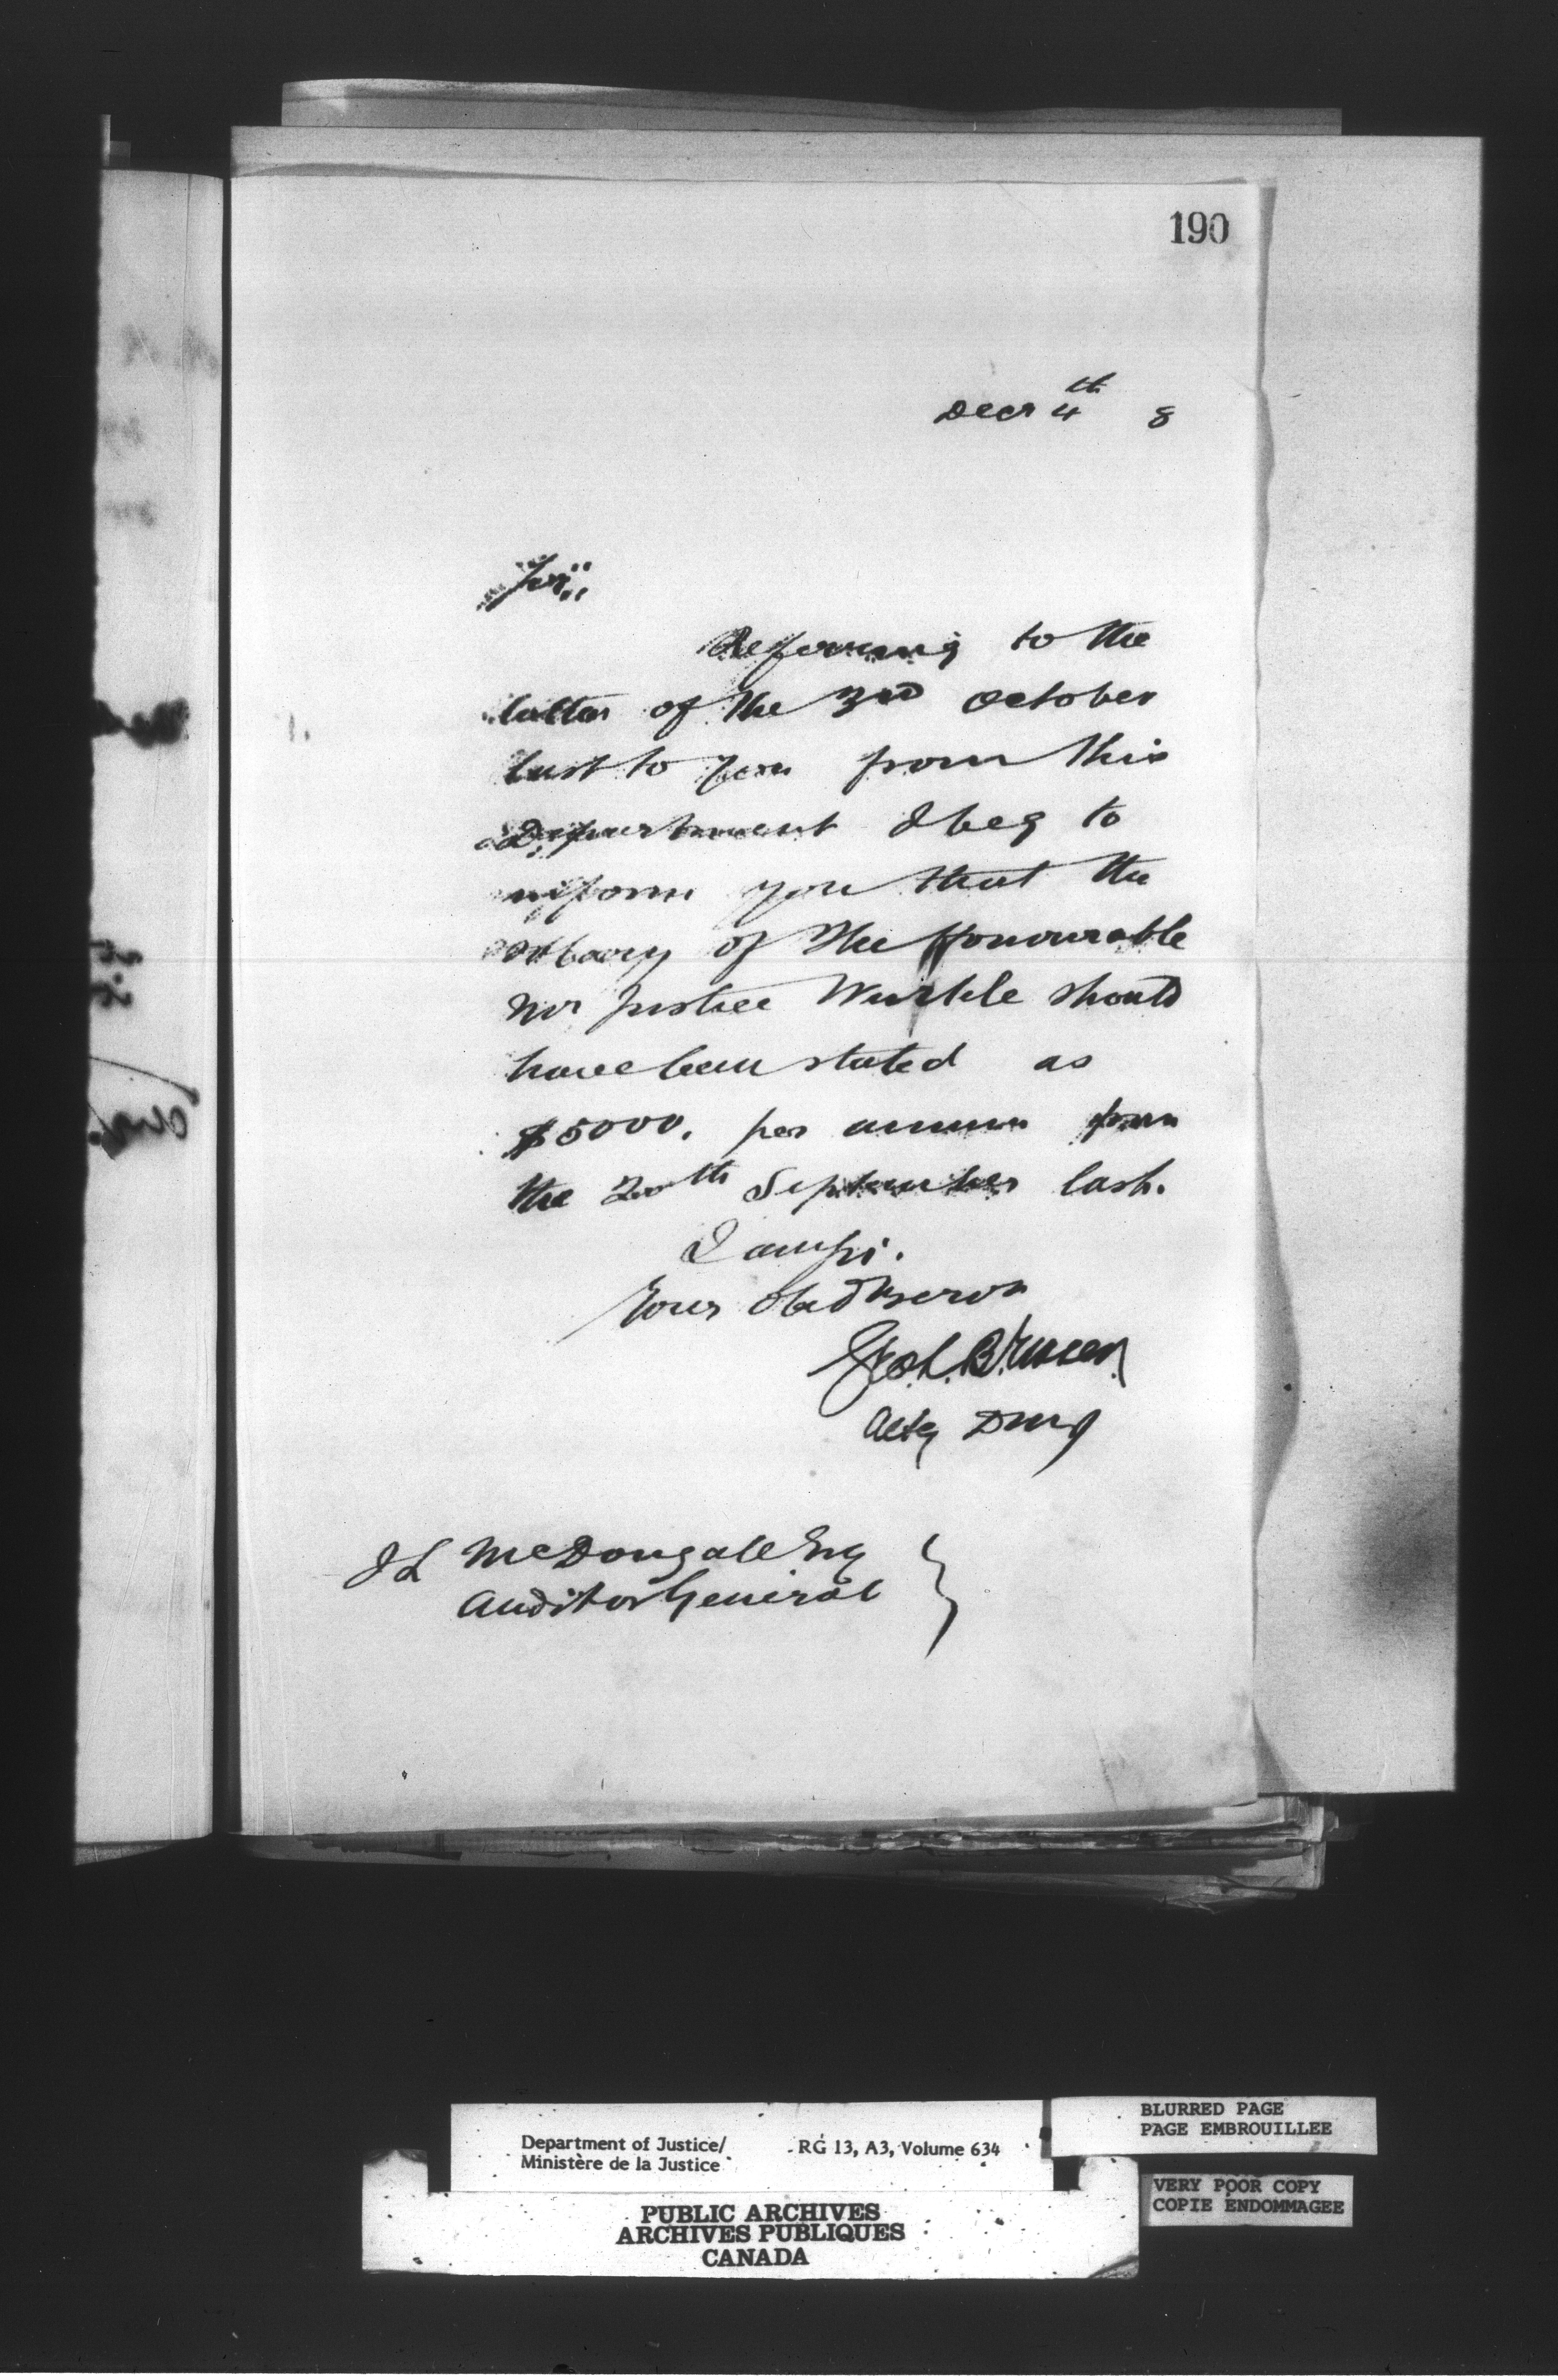 190
Decr 4th 8
Sir,
Referring to the
letter of the 3rd October
last to you from this
Department I beg to
inform you that the
salary of the Honourable
Mr Justice Wurtele should
have been stated as
$5000. per annum from
the 20th September last.
I am Sir.
Your Obedt Servt
Geo. L. B. Fraser
Actg DMJ
J L McDougall Esq
Auditor General
Department of Justice/
Ministère de la Justice
RG 13, A3, Volume 634
BLURRED PAGE
PAGE EMBROUILLEE
VERY POOR COPY
COPIE ENDOMMAGEE
PUBLIC ARCHIVES
ARCHIVES PUBLIQUES
CANADA